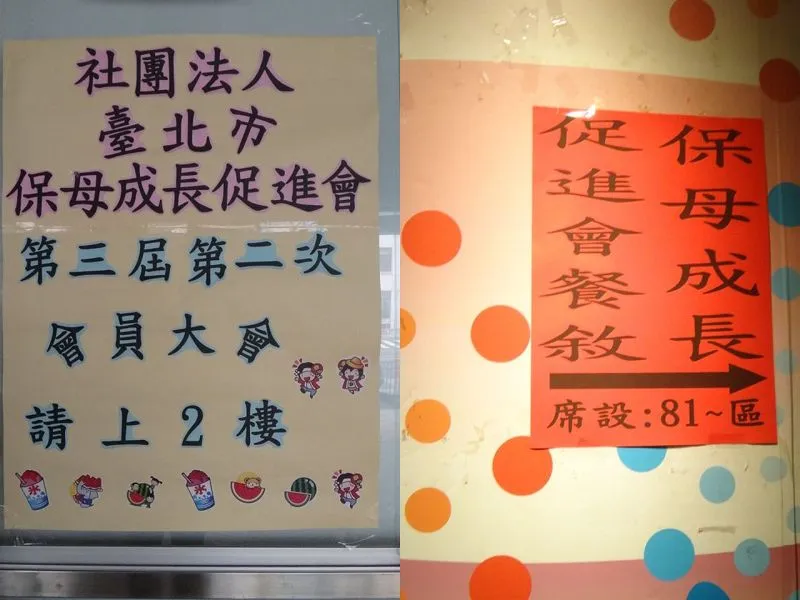 社團法人
臺北市
保母成長促進會
第三屆第二次
會員大會
請上2樓
保母成長
促進會餐敘
席設:81~區